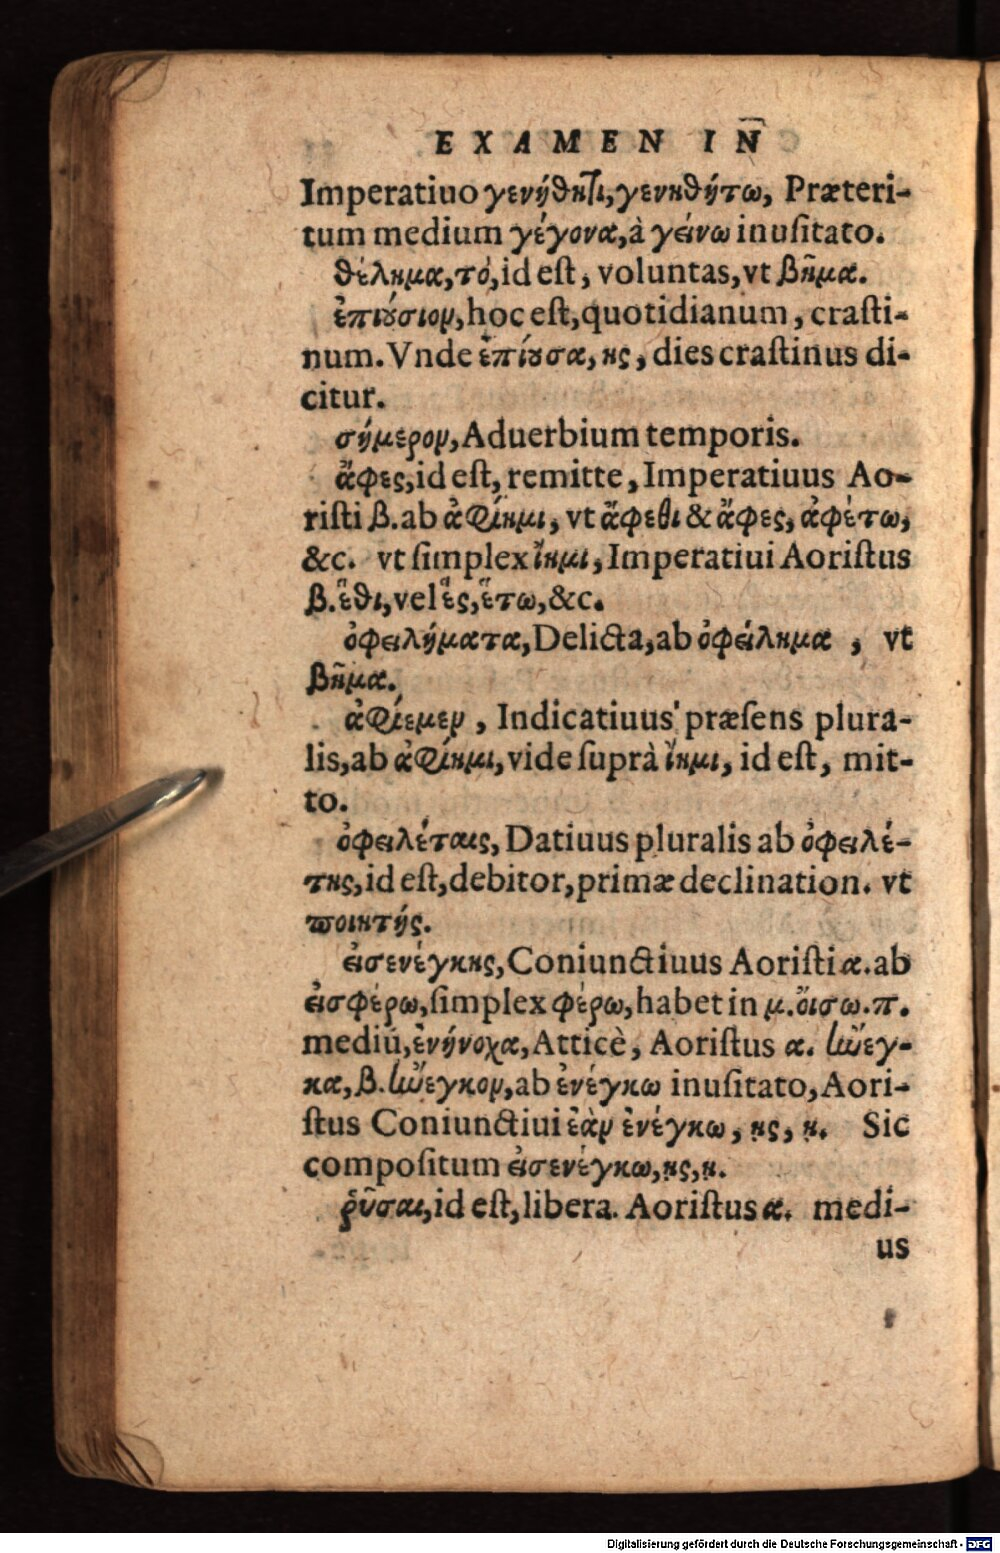 EXAMEN IN
Imperatiuo γενήθητι, γενηθήτω, Præteri-
tum medium γέγονα, à γείνω inuſitato.
θέλημα, τό, id eſt, voluntas, vt βῆμα.
ἐπιούσιον, hoc eſt, quotidianum, craſti-
num. Vnde ἐπίουσα, ης, dies craſtinus di-
citur.
σήμερον, Aduerbium temporis.
ἄφες, id eſt, remitte, Imperatiuus Ao-
riſti β. ab ἀφίημι, vt ἄφεθι & ἄφες, ἀφέτω,
&c. vt ſimplex ἵημι, Imperatiui Aoriſtus
β. ἕθι, vel ἕς, ἕτω, &c.
ὀφειλήματα, Delicta, ab ὀφείλημα, vt
βῆμα.
ἀφίεμεν, Indicatiuus præſens plura-
lis, ab ἀφίημι, vide ſuprà ἵημι, id eſt, mit-
to.
ὀφειλέταις, Datiuus pluralis ab ὀφειλέ-
της, id eſt, debitor, primæ declination. vt
ποιητής.
εἰσενέγκης, Coniunctiuus Aoriſti α. ab
εἰσφέρω, ſimplex φέρω, habet in μ. οἴσω. π.
mediū, ἐνήνοχα, Atticè, Aoriſtus α. ἤνεγ-
κα, β. ἤνεγκον, ab ἐνέγκω inuſitato, Aori-
ſtus Coniunctiui ἐὰν ἐνέγκω, ῃς, ῃ. Sic
compoſitum εἰσενέγκω, ῃς, ῃ.
ῥῦσαι, id eſt, libera. Aoriſtus α. medi-
us
Digitalisierung gefördert durch die Deutsche Forschungsgemeinschaft - DFG